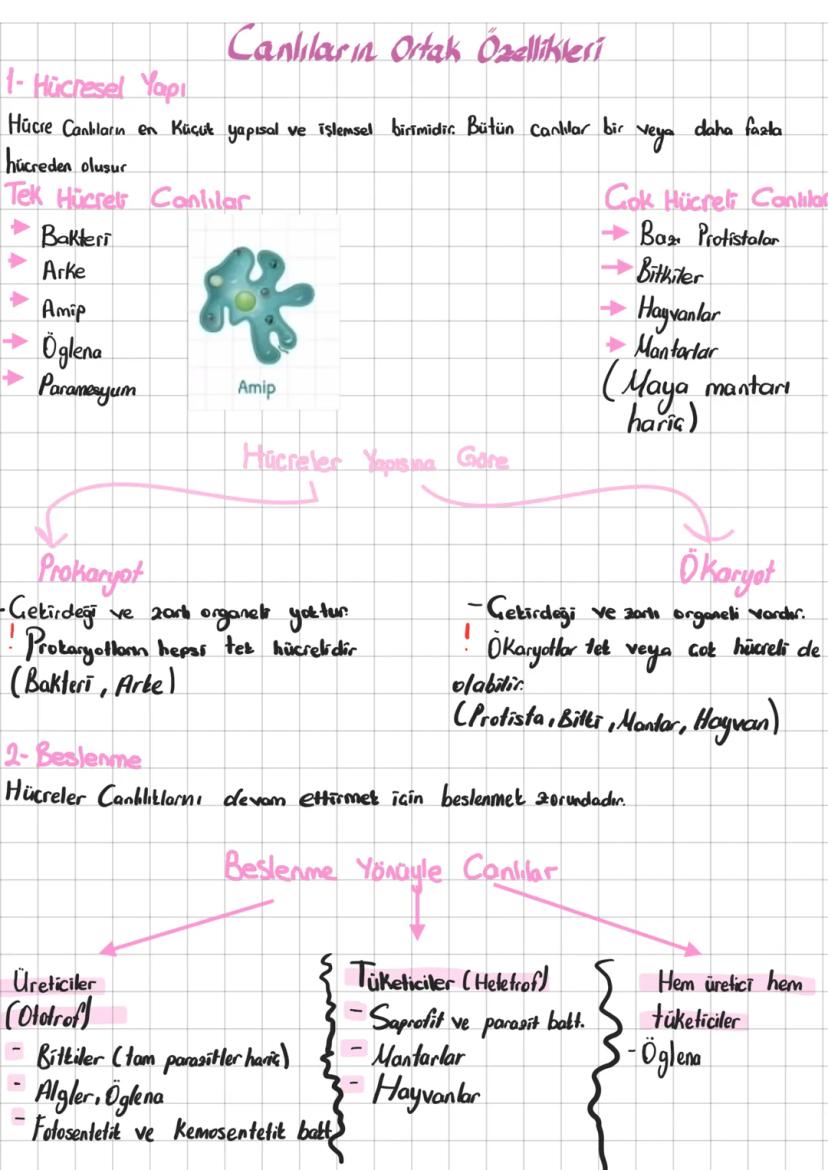 Canlıların Ortak Özellikleri
1- Hücresel Yapı
Hücre Canlıların en Küçük yapısal ve işlemsel birimidir. Bütün canlılar bir veya daha fazla
hücreden oluşur
Tek Hücreli Canlılar
Bakteri
Arke
Amip
Öglena
Paramesyum
Amip
Çok Hücreli Canlılar
Bazı Protistalar
Bitkiler
Hayvanlar
Mantarlar
(Maya mantarı
hariç)
Hücreler Yapısına Göre
Prokaryot
-Çekirdeği ve zarlı organeli yoktur.
! Prokaryotların hepsi tek hücrelidir
(Bakteri, Arke)
Ökaryot
- Çekirdeği ve zarlı organeli vardır.
! Ökaryotlar tek veya çok hücreli de
olabilir.
(Protista, Bitki, Mantar, Hayvan)
2- Beslenme
Hücreler Canlılıklarını devam ettirmek için beslenmek zorundadır.
Beslenme Yönüyle Canlılar
Üreticiler
(Ototrof)
- Bitkiler (tam parasitler hariç)
- Algler, Öglena
- Fotosentetik ve Kemosentetik bakt.
Tüketiciler (Hetetrof)
- Saprofit ve parasit bakt.
- Mantarlar
- Hayvanlar
Hem üretici hem
tüketiciler
- Öglena